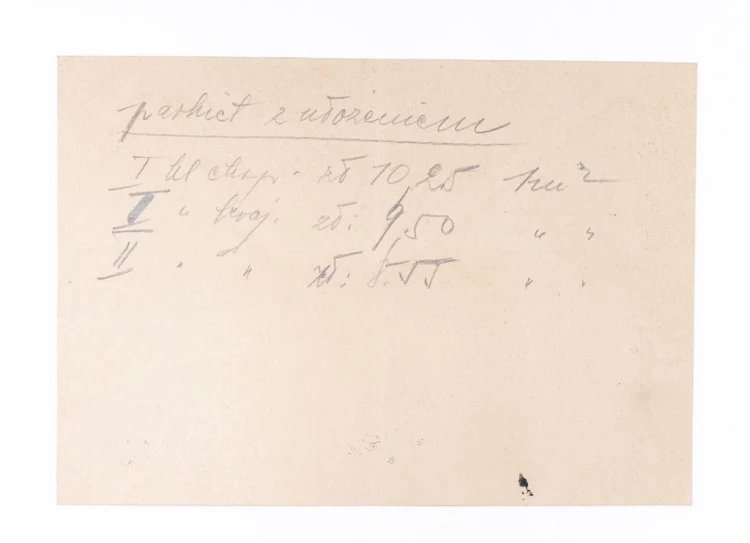 parkiet z ułożeniem
I kl eksp. zł 10,25 1m²
I " kraj. zł: 9,50 " "
II " " zł: 8.55 " "